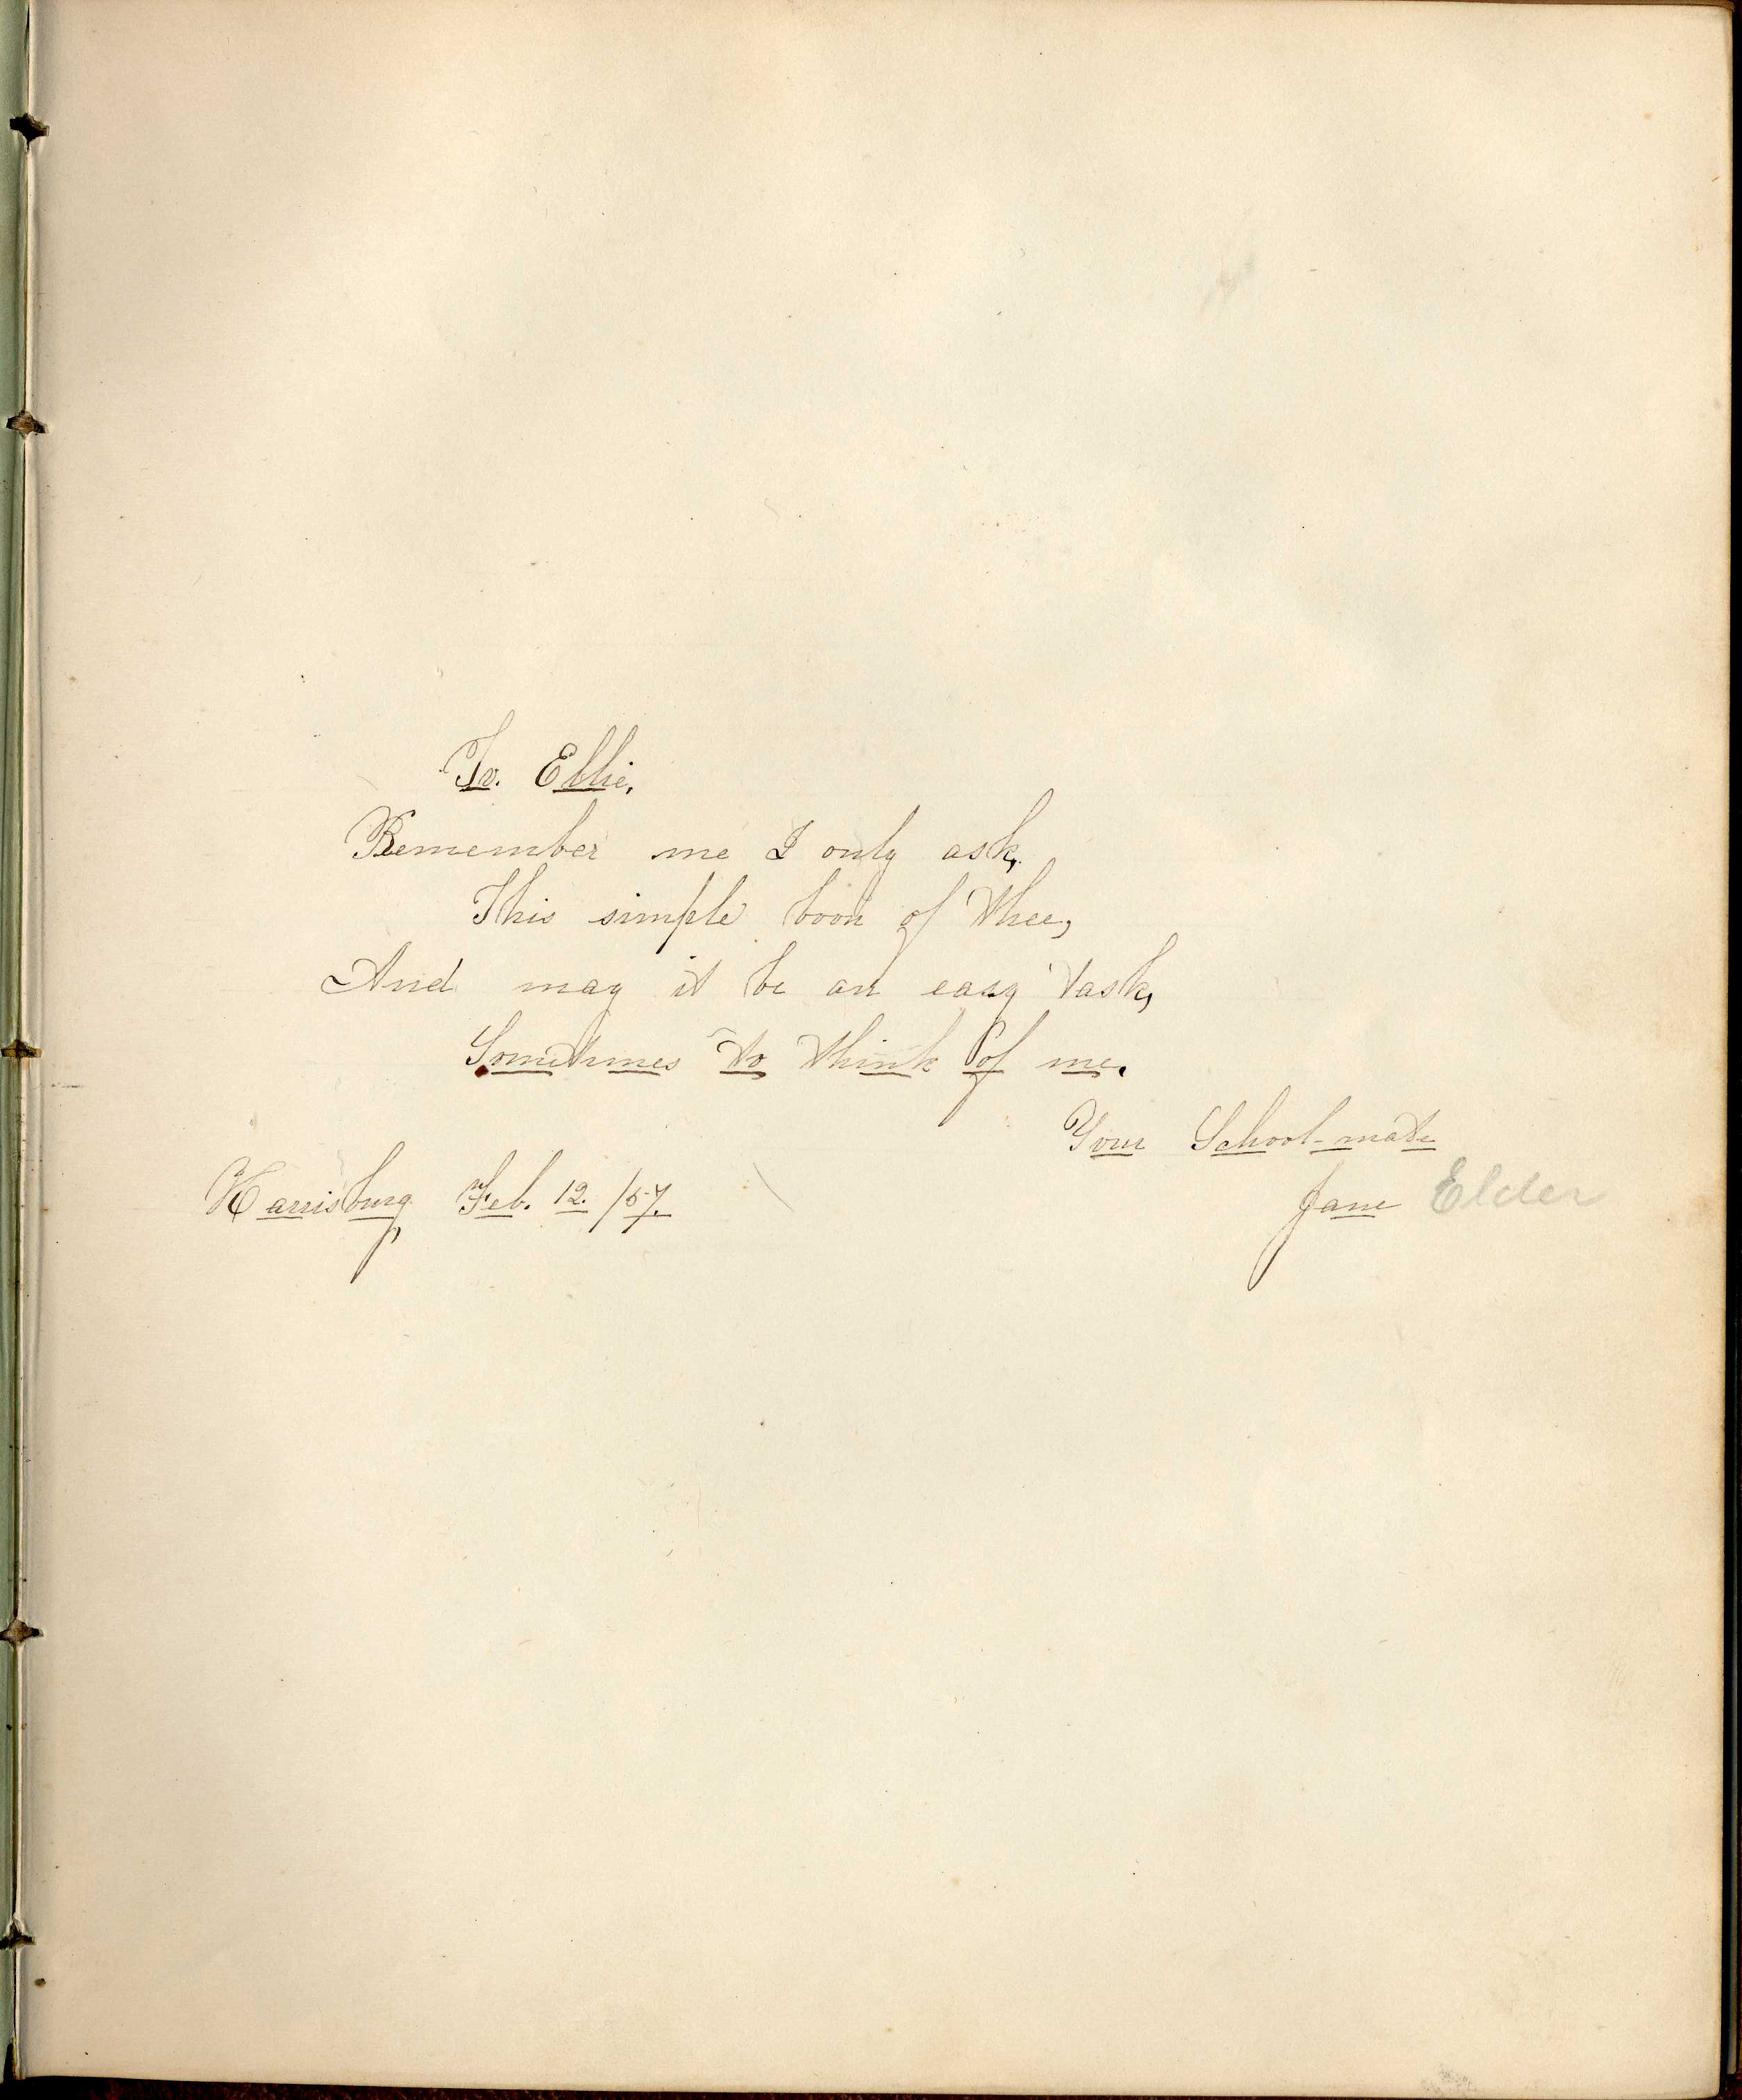 To. Ellie,
Remember me I only ask,
This simple boon of thee,
And may it be an easy task,
Sometimes to think of me.
Your School-mate
Harrisburg, Feb. 12. /57.
Jane Elder